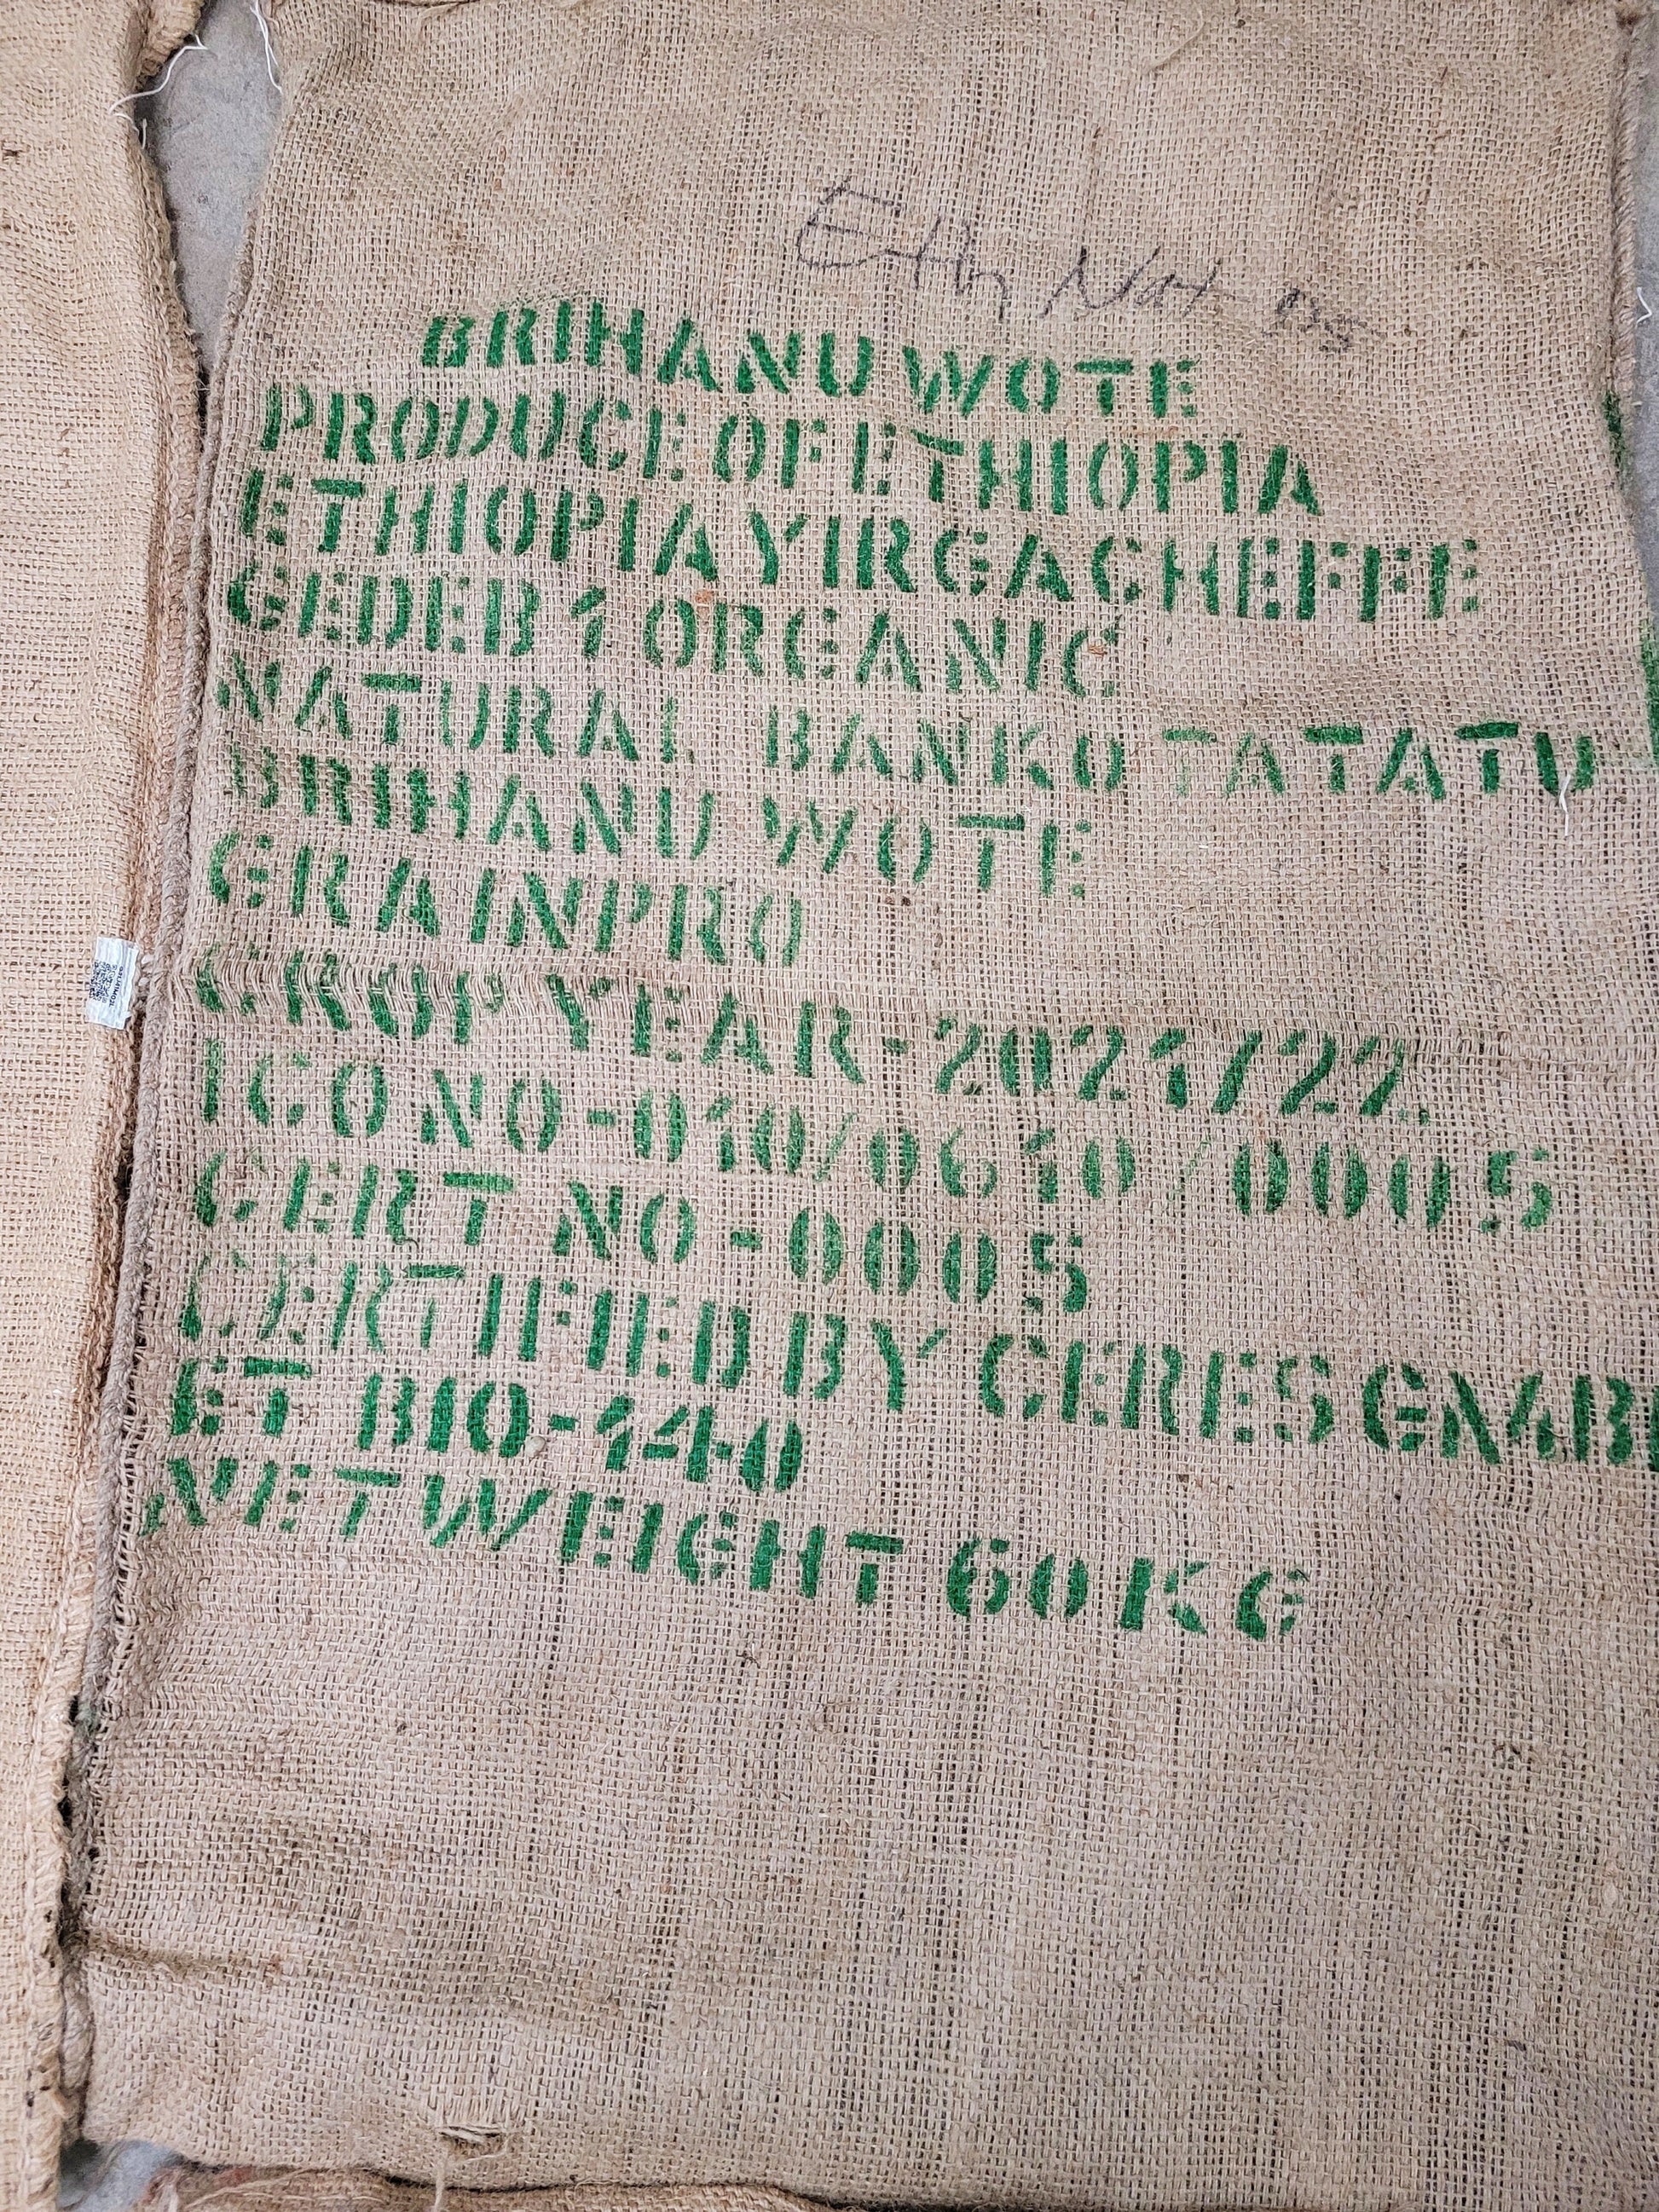 Eth Nat
BRIHANU WOTE
PRODUCE OF ETHIOPIA
ETHIOPIA YIRGACHEFFE
GEDEB 1 ORGANIC
NATURAL BANKO TATATU
BRIHANU WOTE
GRAINPRO
CROP YEAR-2021/22.
ICO NO-010/0610/0005
CERT NO-0005
CERTIFIED BY CERES GMB
ET BIO-140
NET WEIGHT 60KG